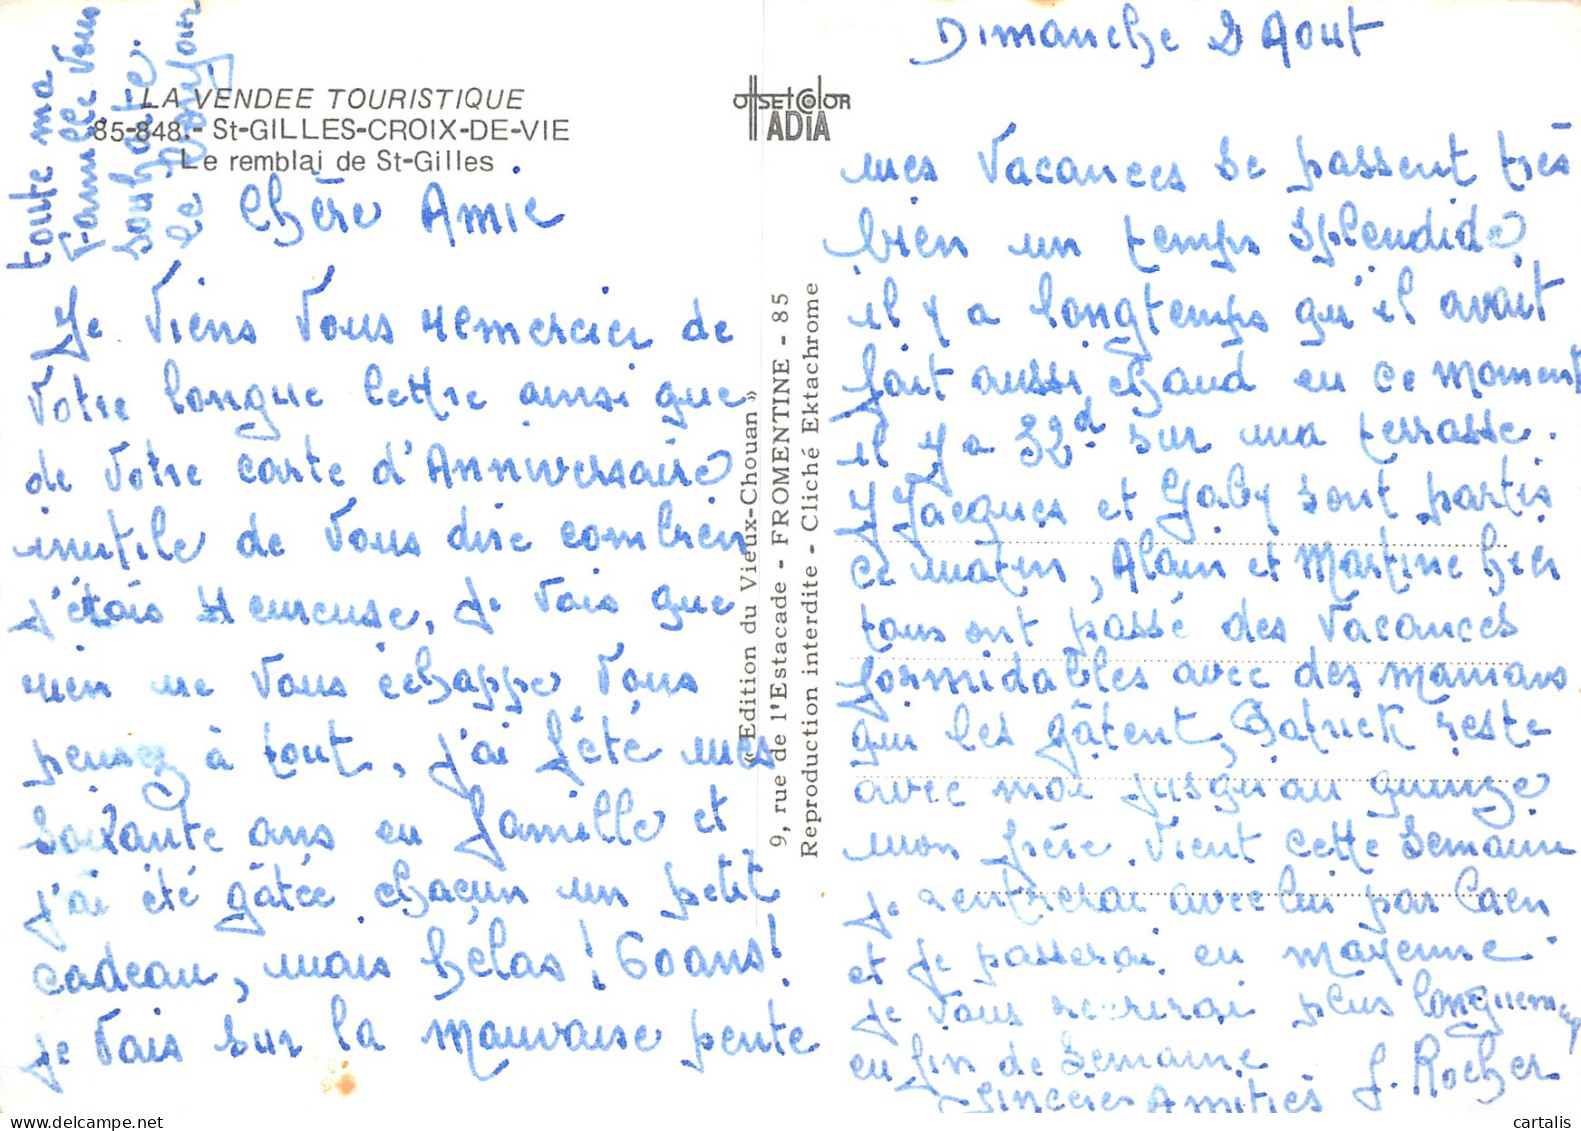 Dimanche 2 Aout
LA VENDEE TOURISTIQUE
85-848.- St-GILLES-CROIX-DE-VIE
Le remblai de St-Gilles
OffSEtColoR
ADIA
Chère Amie
Je Viens Vous remercier de
Votre longue lettre ainsi que
de Votre carte d'Anniversaire
inutile de Vous dire combien
j'étais Heureuse, je Vois que
rien ne Vous échappe, Vous
pensez à tout, j'ai fêté mes
soixante ans en famille et
j'ai été gâtée chacun un petit
cadeau, mais hélas ! 60 ans !
je Vais sur la mauvaise pente
mes Vacances se passent très
bien un temps splendide
il y a longtemps qu'il avait
fait aussi chaud en ce moment
il y a 32d sur ma terrasse.
Jacques et Gaby sont partis
ce matin, Alain et Martine hier
tous ont passé des Vacances
formidables avec des mamans
qui les gâtent, Patrick reste
avec moi jusqu'au quinze
mon frère Vient cette semaine
je rentrerai avec lui par Caen
et je passerai en Mayenne
je Vous récrirai plus longuement
en fin de semaine
Sincères Amitiés J. Rocher
toute ma
Famille vous
souhaite
le bonjour
«Edition du Vieux-Chouan»
9, rue de l'Estacade - FROMENTINE - 85
Reproduction interdite - Cliché Ektachrome
cartalis